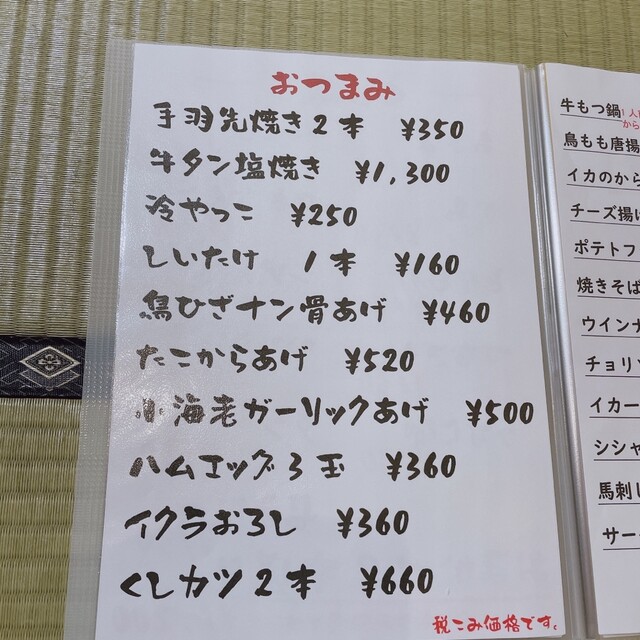 おつまみ
手羽先焼き2本 ¥350
牛タン塩焼き ¥1,300
冷やっこ ¥250
しいたけ 1本 ¥160
鳥ひざナン骨あげ ¥460
たこからあげ ¥520
小海老ガーリックあげ ¥500
ハムエッグ3玉 ¥360
イクラおろし ¥360
くしカツ2本 ¥660
税こみ価格です。
牛もつ鍋 1人
から
鳥もも唐揚
イカのから
チーズ揚げ
ポテトフ
焼きそば
ウインナ
チョリソ
イカー
シシャ
馬刺し
サー